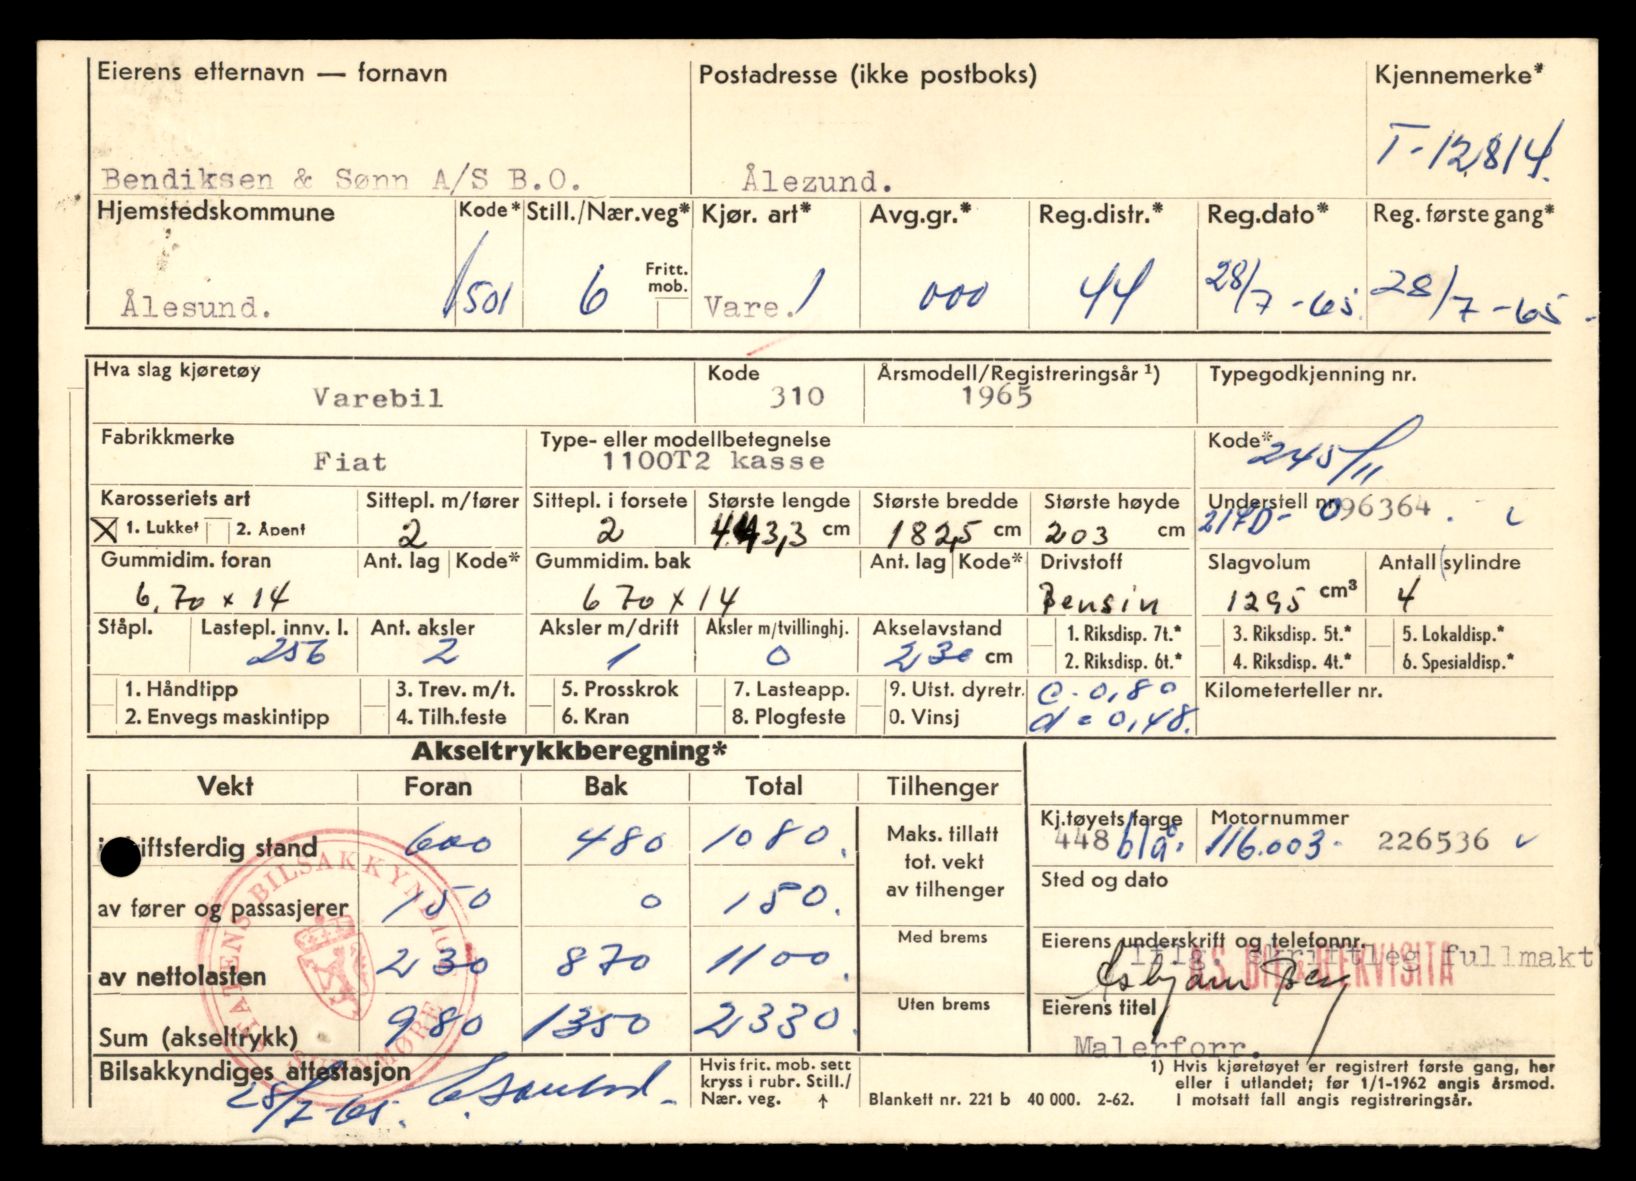 Eierens etternavn — fornavn Postadresse (ikke postboks) Kjennemerke*
T-12814.
Bendiksen & Sønn A/S B.O. Ålezund.
Hjemstedskommune Kode* Still./Nær.veg* Kjør. art* Avg.gr.* Reg.distr.* Reg.dato* Reg. første gang*
Fritt. mob.
Ålesund. 1501 6 Vare. 1 000 44 28/7-65. 28/7-65.
Hva slag kjøretøy Kode Årsmodell/Registreringsår ¹) Typegodkjenning nr.
Varebil 310 1965
Fabrikkmerke Type- eller modellbetegnelse Kode*
Fiat 1100T2 kasse 245/11
Karosseriets art Sittepl. m/fører Sittepl. i forsete Største lengde Største bredde Største høyde Understell nr.
1. Lukket 2. Åpent 2 2 443,3 cm 182,5 cm 203 cm 217D- 096364.
Gummidim. foran Ant. lag Kode* Gummidim. bak Ant. lag Kode* Drivstoff Slagvolum Antall sylindre
6,70 x 14 670 x 14 Bensin 1295 cm³ 4
Ståpl. Lastepl. innv. l. Ant. aksler Aksler m/drift Aksler m/tvillinghj. Akselavstand 1. Riksdisp. 7t.* 3. Riksdisp. 5t.* 5. Lokaldisp.*
256 2 1 0 230 cm 2. Riksdisp. 6t.* 4. Riksdisp. 4t.* 6. Spesialdisp.*
1. Håndtipp 3. Trev. m/t. 5. Prosskrok 7. Lasteapp. 9. Utst. dyretr. c = 0,80 Kilometerteller nr.
2. Envegs maskintipp 4. Tilh.feste 6. Kran 8. Plogfeste 0. Vinsj d = 0,48.
Akseltrykkberegning*
Vekt Foran Bak Total Tilhenger
iftsferdig stand 600 480 1080.
Maks. tillatt
tot. vekt
av tilhenger
Kj.tøyets farge Motornummer
448 blå. 116.003. 226536
av fører og passasjerer 150 0 150.
Sted og dato
Med brems
Eierens underskrift og telefonnr.
iflg. skriftleg fullmakt
av nettolasten 230 870 1100.
Uten brems
Eierens titel
Malerforr.
Sum (akseltrykk) 980 1350 2330.
STATENS BILSAKKYNDIGE
SUNNMØRE
Bilsakkyndiges attestasjon
28/7-65.
Hvis fric. mob. sett
kryss i rubr. Still./
Nær. veg. ↑
Blankett nr. 221 b 40 000. 2-62.
1) Hvis kjøretøyet er registrert første gang, her
eller i utlandet; før 1/1-1962 angis årsmod.
I motsatt fall angis registreringsår.